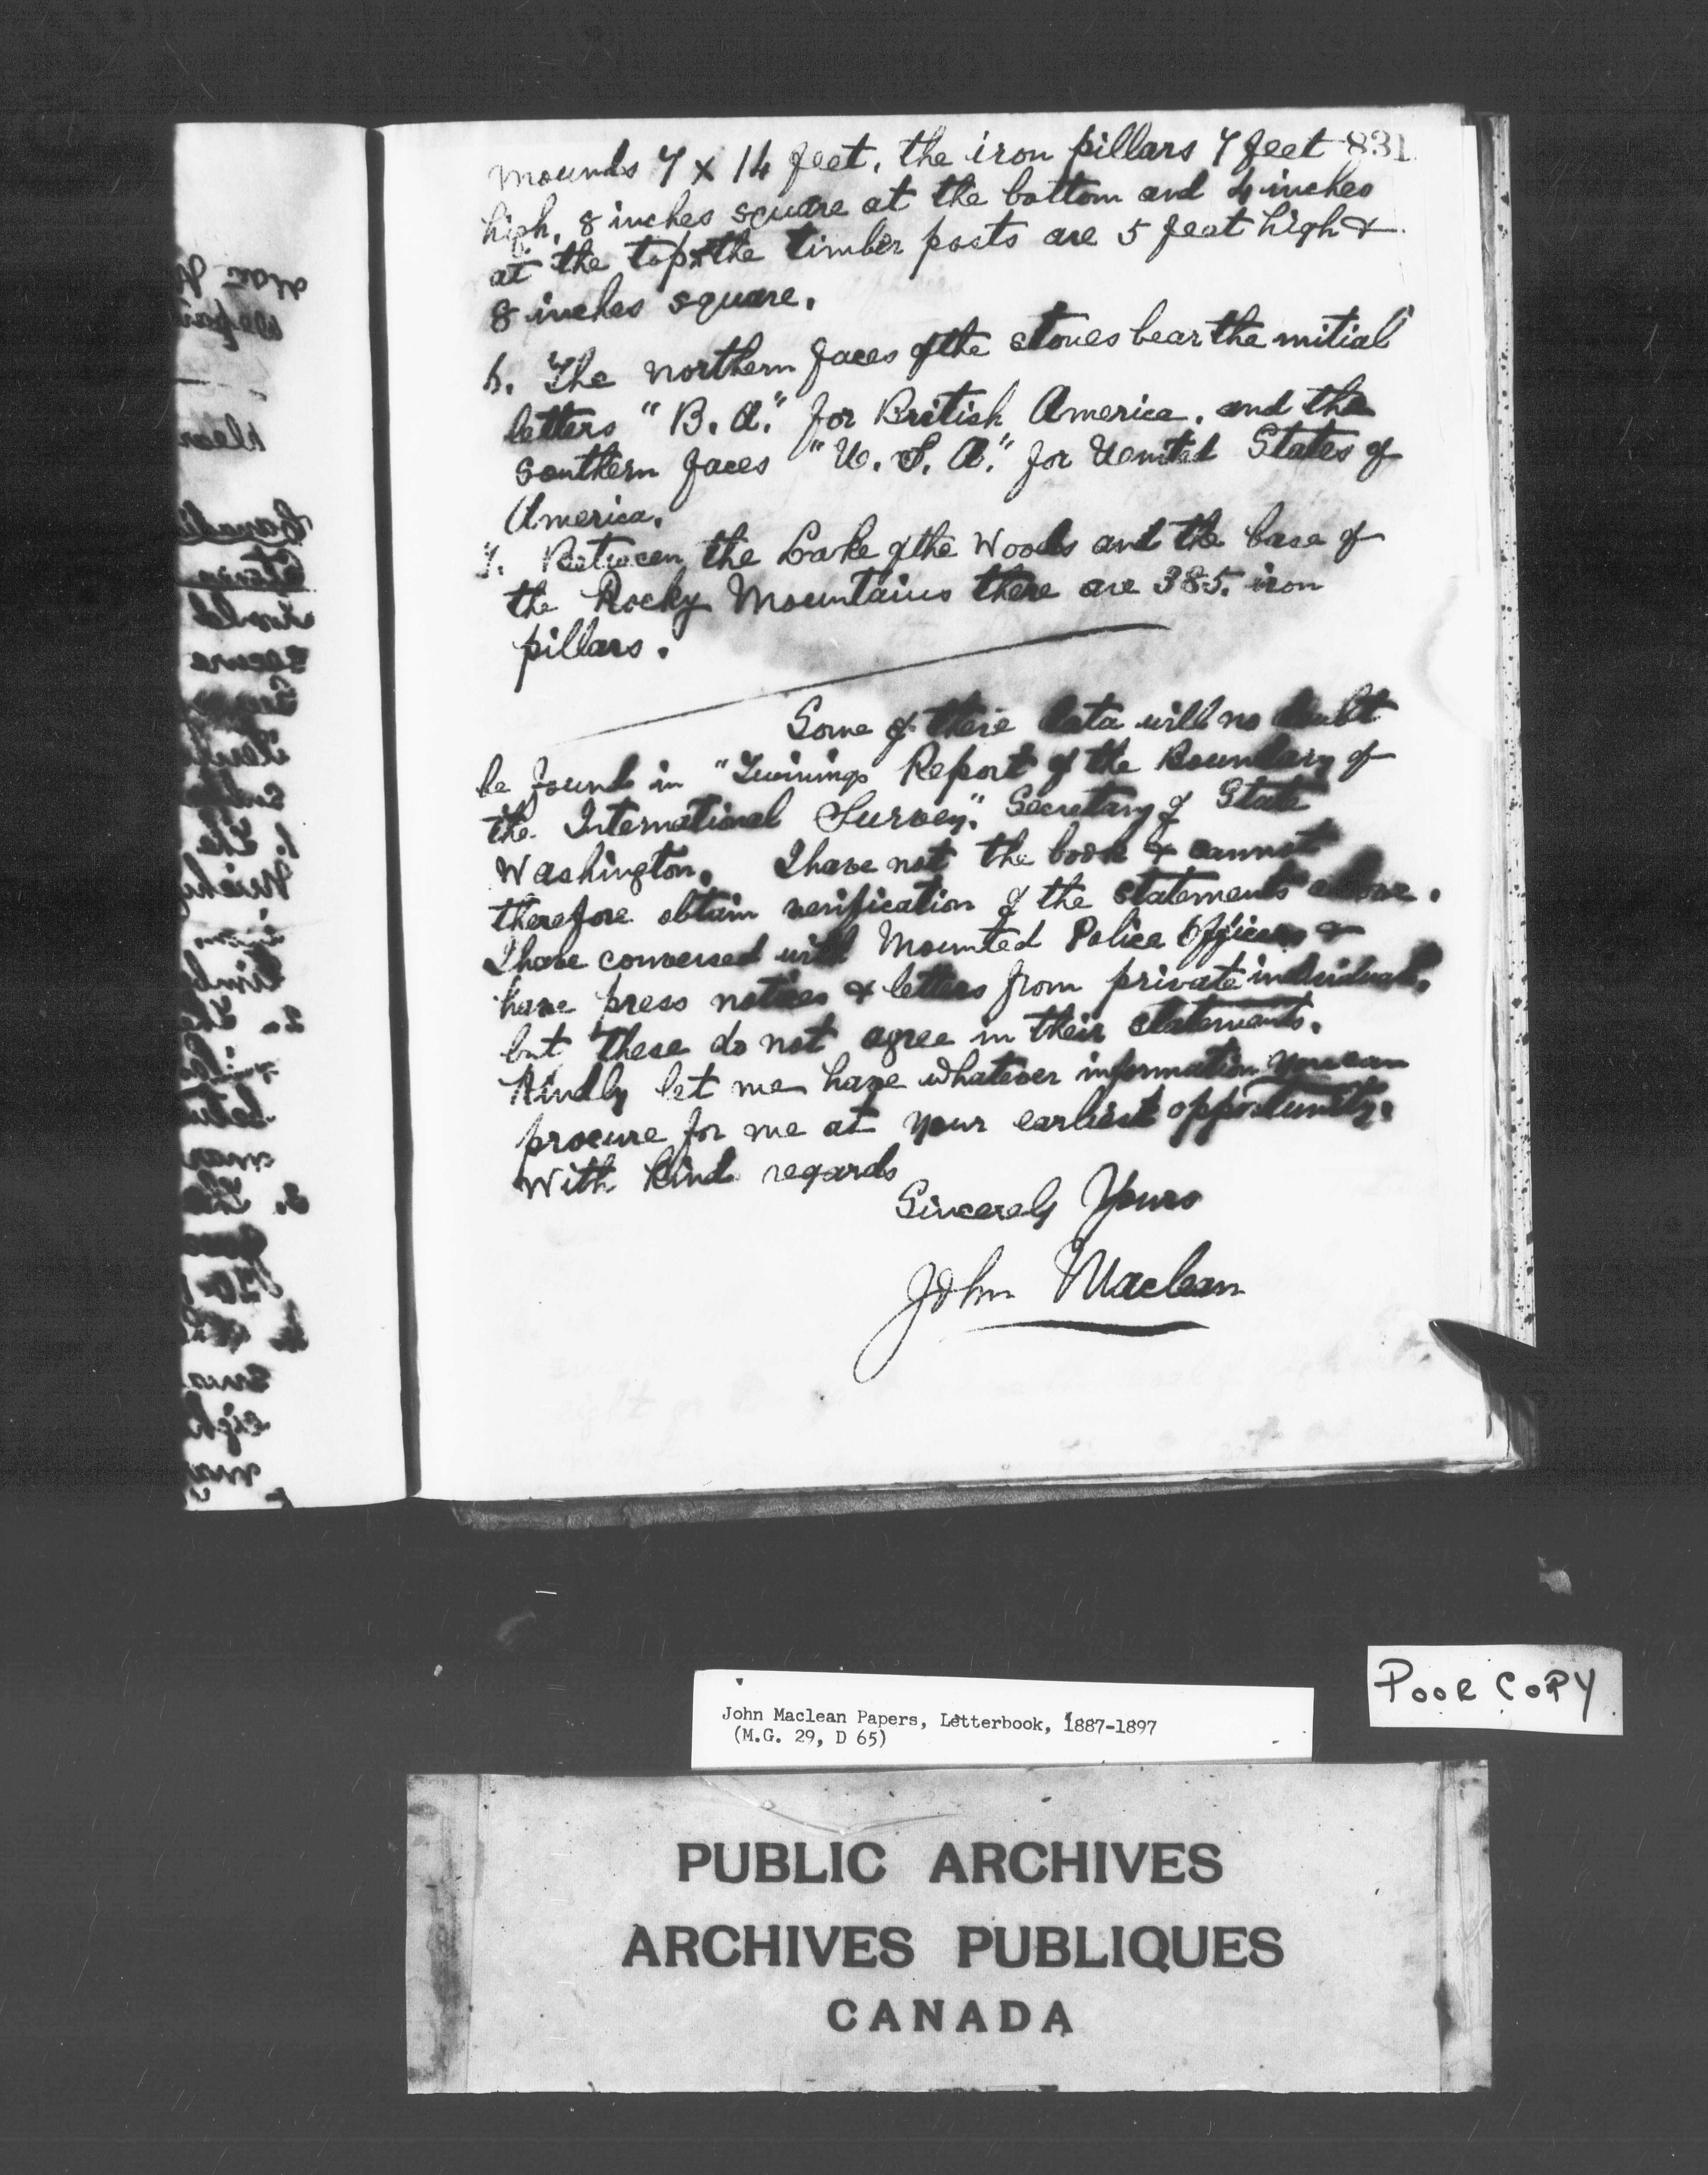 831
mounds 7 x 14 feet, the iron pillars 7 feet
high, 8 inches square at the bottom and 4 inches
at the top, & the timber posts are 5 feet high &
8 inches square.
6. The northern faces of the stones bear the initial
letters "B. A." for British America, and the
southern faces "U. S. A." for United States of
America.
7. Between the Lake of the Woods and the base of
the Rocky Mountains there are 385. iron
pillars.
Some of these data will no doubt
be found in "Twinings Report of the Boundary of
the International Survey," Secretary of State
Washington. I have not the book & cannot
therefore obtain verification of the statements above.
I have conversed with Mounted Police Officers &
have press notices & letters from private individuals,
but these do not agree in their statements.
Kindly let me have whatever information you can
procure for me at your earliest opportunity.
With kind regards
Sincerely Yours
John Maclean
POOR COPY
John Maclean Papers, Letterbook, 1887-1897
(M.G. 29, D 65)
PUBLIC ARCHIVES
ARCHIVES PUBLIQUES
CANADA